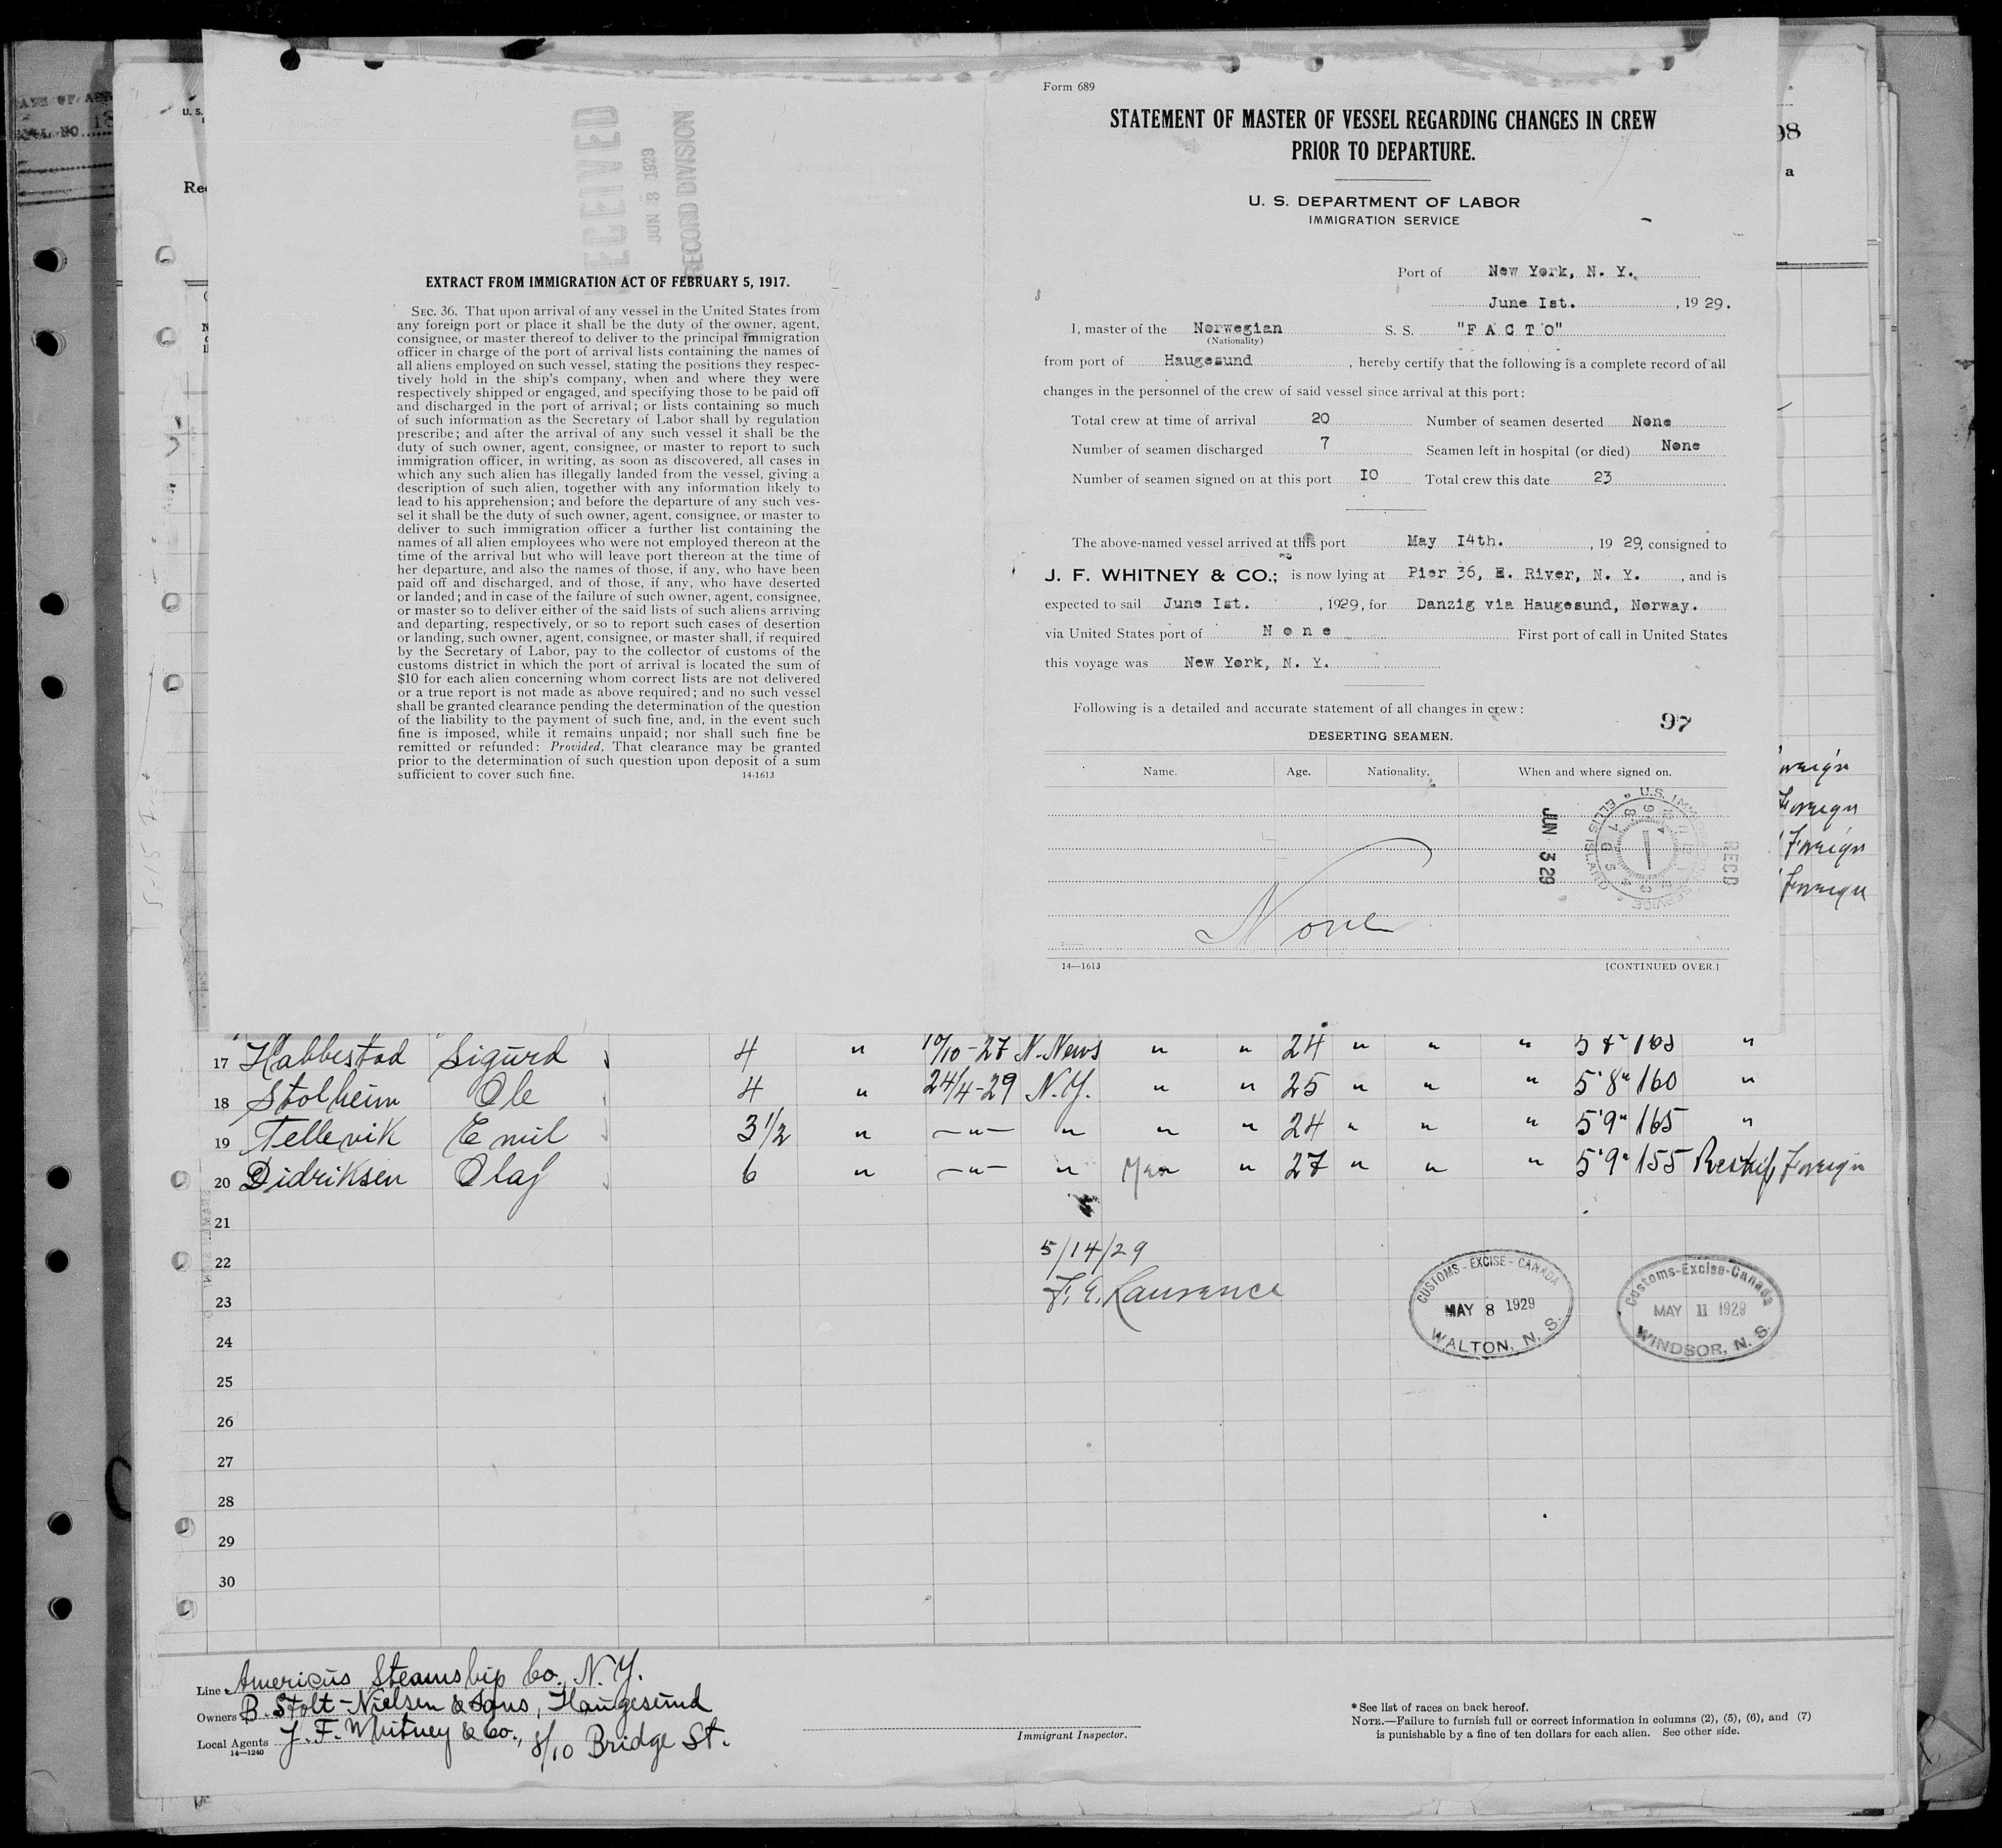 RECEIVED
JUN 3 1929
RECORD DIVISION
EXTRACT FROM IMMIGRATION ACT OF FEBRUARY 5, 1917.
SEC. 36. That upon arrival of any vessel in the United States from
any foreign port or place it shall be the duty of the owner, agent,
consignee, or master thereof to deliver to the principal immigration
officer in charge of the port of arrival lists containing the names of
all aliens employed on such vessel, stating the positions they respec-
tively hold in the ship's company, when and where they were
respectively shipped or engaged, and specifying those to be paid off
and discharged in the port of arrival; or lists containing so much
of such information as the Secretary of Labor shall by regulation
prescribe; and after the arrival of any such vessel it shall be the
duty of such owner, agent, consignee, or master to report to such
immigration officer, in writing, as soon as discovered, all cases in
which any such alien has illegally landed from the vessel, giving a
description of such alien, together with any information likely to
lead to his apprehension; and before the departure of any such ves-
sel it shall be the duty of such owner, agent, consignee, or master to
deliver to such immigration officer a further list containing the
names of all alien employees who were not employed thereon at the
time of the arrival but who will leave port thereon at the time of
her departure, and also the names of those, if any, who have been
paid off and discharged, and of those, if any, who have deserted
or landed; and in case of the failure of such owner, agent, consignee,
or master so to deliver either of the said lists of such aliens arriving
and departing, respectively, or so to report such cases of desertion
or landing, such owner, agent, consignee, or master shall, if required
by the Secretary of Labor, pay to the collector of customs of the
customs district in which the port of arrival is located the sum of
$10 for each alien concerning whom correct lists are not delivered
or a true report is not made as above required; and no such vessel
shall be granted clearance pending the determination of the question
of the liability to the payment of such fine, and, in the event such
fine is imposed, while it remains unpaid; nor shall such fine be
remitted or refunded: Provided, That clearance may be granted
prior to the determination of such question upon deposit of a sum
sufficient to cover such fine. 14-1613
Form 689
STATEMENT OF MASTER OF VESSEL REGARDING CHANGES IN CREW
PRIOR TO DEPARTURE.
U. S. DEPARTMENT OF LABOR
IMMIGRATION SERVICE
Port of New York, N. Y.
June Ist. , 19 29.
I, master of the Norwegian S. S. "F A C T O"
(Nationality)
from port of Haugesund , hereby certify that the following is a complete record of all
changes in the personnel of the crew of said vessel since arrival at this port:
Total crew at time of arrival 20 Number of seamen deserted None
Number of seamen discharged 7 Seamen left in hospital (or died) None
Number of seamen signed on at this port I0 Total crew this date 23
The above-named vessel arrived at this port May I4th. , 19 29, consigned to
J. F. WHITNEY & CO.; is now lying at Pier 36, E. River, N. Y. , and is
expected to sail June Ist. , 1929, for Danzig via Haugesund, Norway.
via United States port of N o n e First port of call in United States
this voyage was New York, N. Y.
Following is a detailed and accurate statement of all changes in crew:
97
DESERTING SEAMEN.
Name. Age. Nationality. When and where signed on.
JUN 3 29
U.S. IMMIGRATION SERVICE ELLIS ISLAND
RECD
None
14—1613 [CONTINUED OVER.]
98
Foreign
Foreign
Foreign
Foreign
17 Habbestad Sigurd 4 " 10/10-27 N. News " " 24 " " "
18 Stolheim Ole 4 " 24/4-29 N.Y. " " 25 " " " 5'8" 160 "
19 Tellevik Emil 3 1/2 " —"— " " " 24 " " " 5'9" 165 "
20 Didriksen Olaf 6 " —"— " " 27 " " " 5'9" 155 Foreign
21
22
23
24
25
26
27
28
29
30
5/14/29
F. E. Laurence
CUSTOMS - EXCISE - CANADA
MAY 8 1929
WALTON, N. S.
Customs-Excise-Canada
MAY 11 1929
WINDSOR, N. S.
Line Americus Steamship Co. N.Y.
Owners B. Stolt-Nielsen & Sons, Haugesund
Local Agents J. F. Whitney & Co., 8/10 Bridge St.
14—1240
Immigrant Inspector.
* See list of races on back hereof.
NOTE.—Failure to furnish full or correct information in columns (2), (5), (6), and (7)
is punishable by a fine of ten dollars for each alien. See other side.